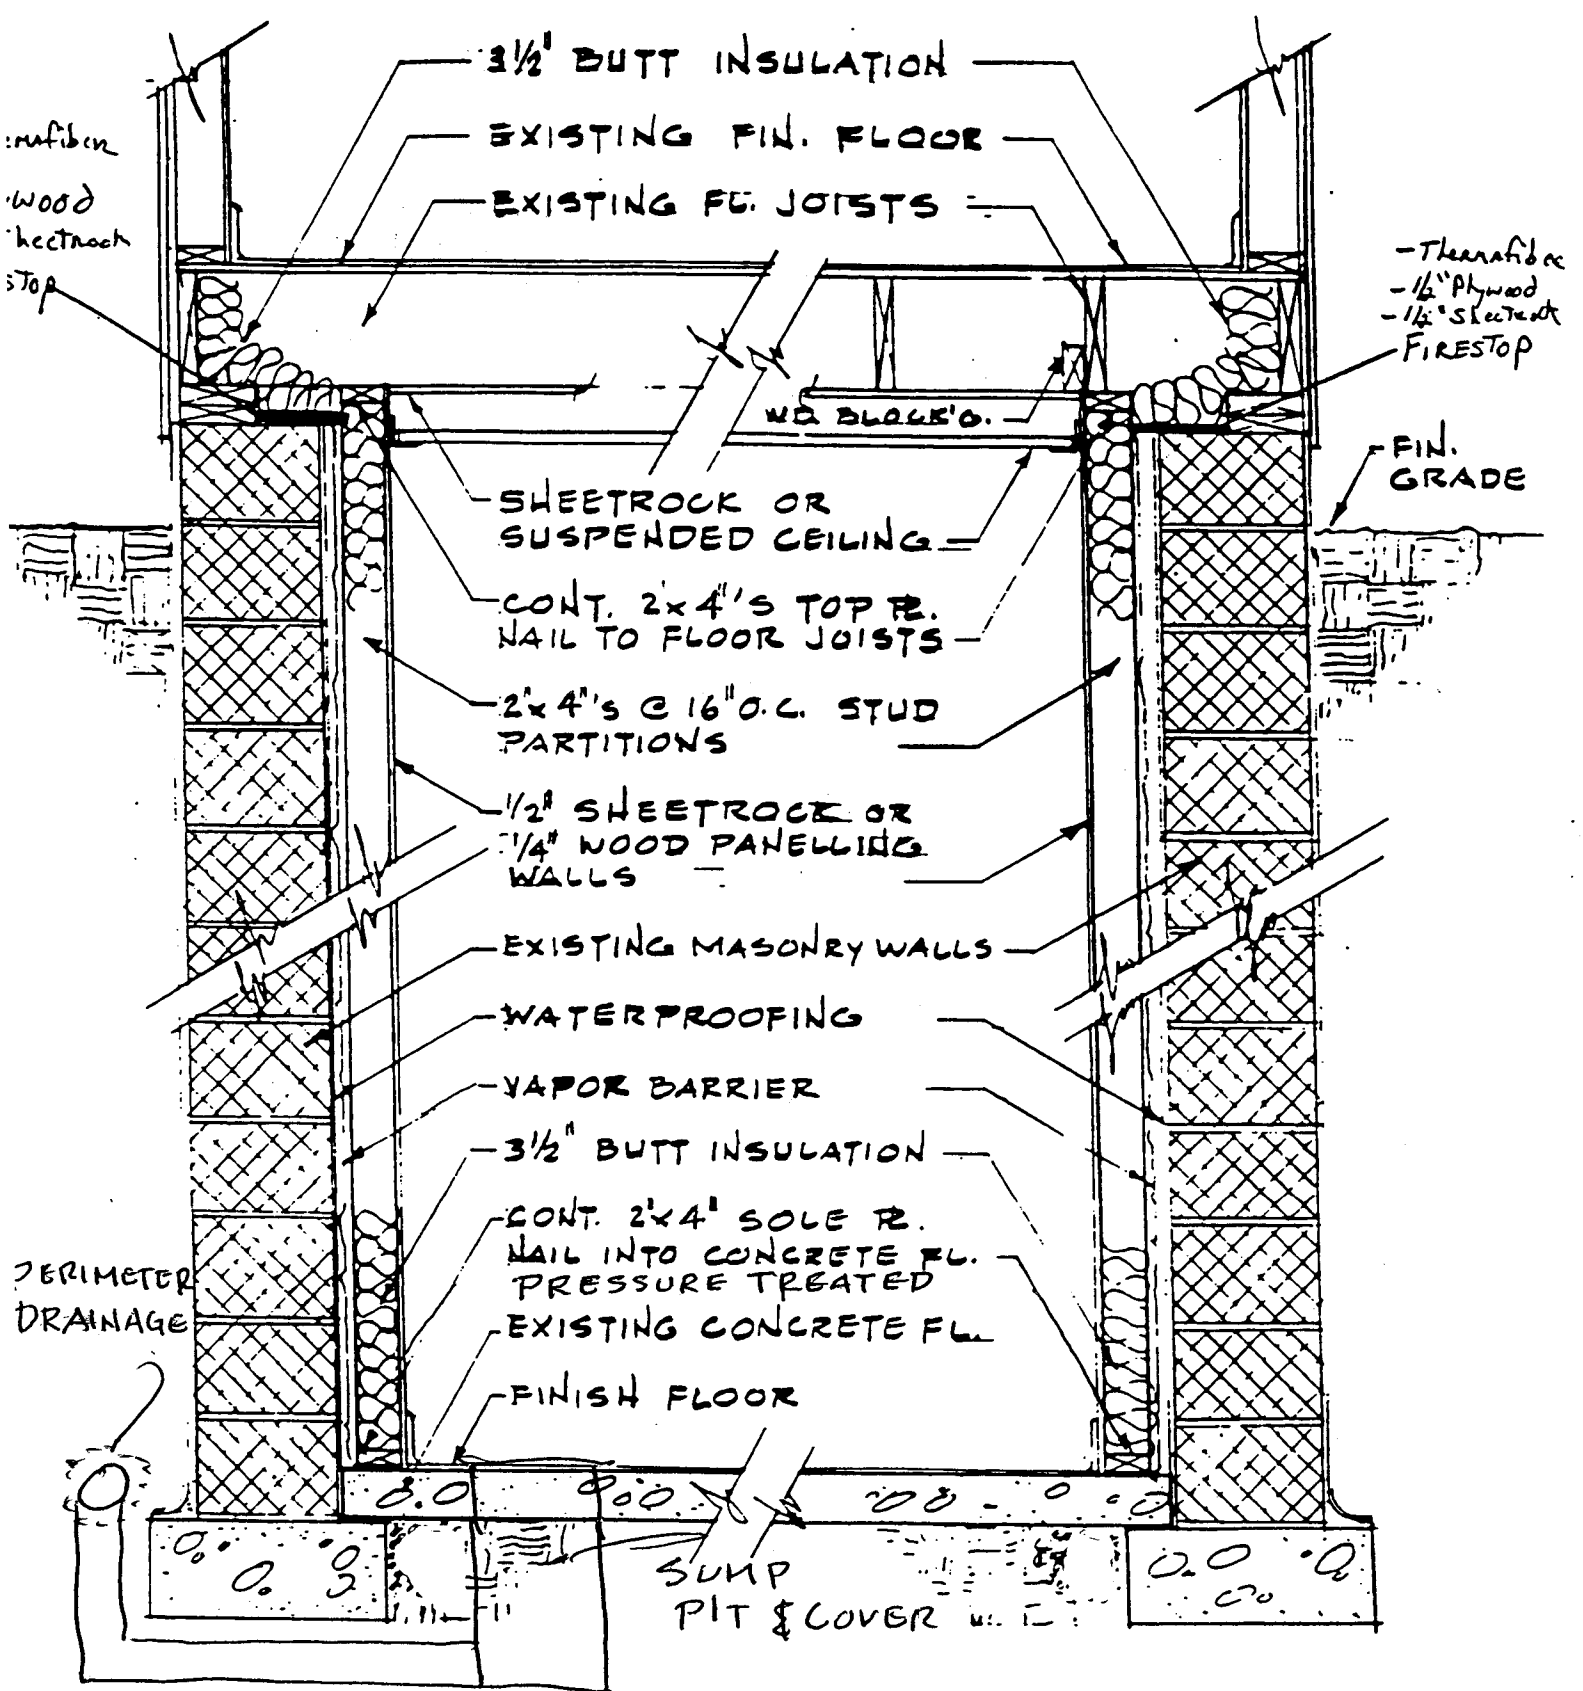 3½" BUTT INSULATION
EXISTING FIN. FLOOR
EXISTING FL. JOISTS
STOP
- Thermafiber
- ½" Plywood
- ½" Sheetrock
FIRESTOP
WD. BLOCK'G.
FIN.
GRADE
SHEETROCK OR
SUSPENDED CEILING
CONT. 2"x4"'S TOP PL.
NAIL TO FLOOR JOISTS
2"x4"'s @ 16" O.C. STUD
PARTITIONS
1/2" SHEETROCK OR
1/4" WOOD PANELLING
WALLS
EXISTING MASONRY WALLS
WATERPROOFING
VAPOR BARRIER
3½" BUTT INSULATION
CONT. 2"x4" SOLE PL.
NAIL INTO CONCRETE FL.
PRESSURE TREATED
EXISTING CONCRETE FL.
FINISH FLOOR
PERIMETER
DRAINAGE
SUMP
PIT & COVER